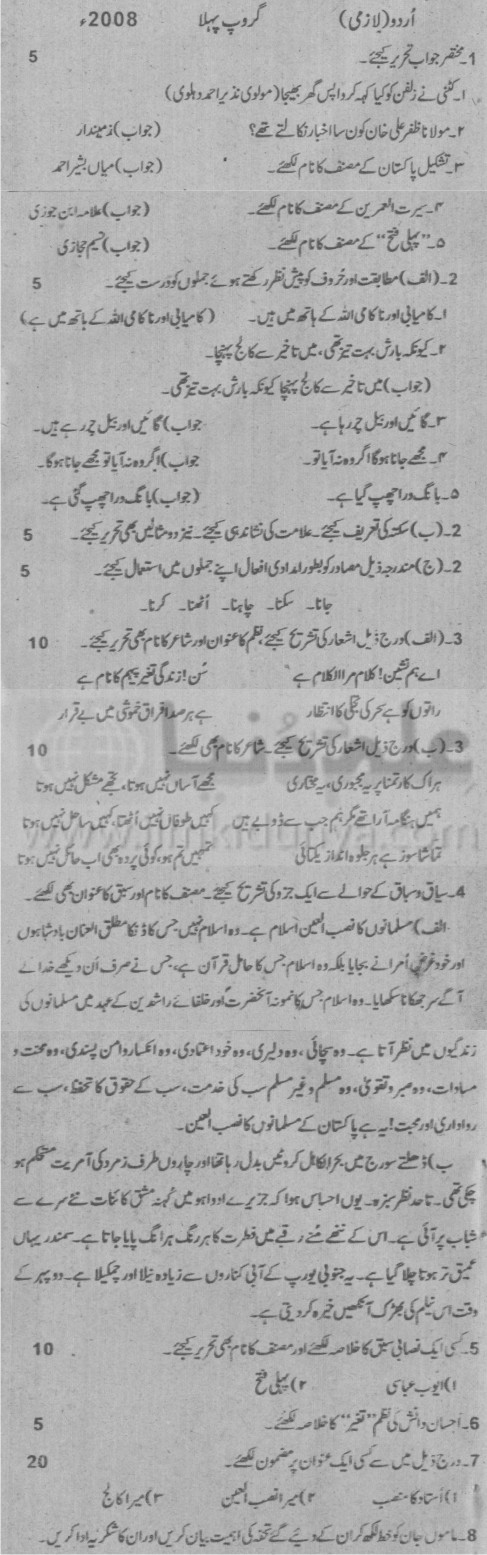 اُردو(لازمی) گروپ پہلا 2008ء
1۔مختصر جواب تحریر کیجئے۔ 5
۱۔کٹنی نے زلفن کو کیا کہہ کر واپس گھر بھیجا (مولوی نذیر احمد دہلوی)
۲۔مولانا ظفر علی خان کون سا اخبار نکالتے تھے؟ (جواب) زمیندار
۳۔تشکیل پاکستان کے مصنف کا نام لکھئے۔ (جواب) میاں بشیر احمد
۴۔سیرت العمرین کے مصنف کا نام لکھئے۔ (جواب) علامہ ابن جوزی
۵۔"پہلی فتح" کے مصنف کا نام لکھئے۔ (جواب) نسیم حجازی
2۔(الف) مطابقت اور حُروف کو پیش نظر رکھتے ہوئے جملوں کو دُرست کیجئے۔ 5
۱۔کامیابی اور ناکامی اللہ کے ہاتھ میں ہیں۔ (کامیابی اور ناکامی اللہ کے ہاتھ میں ہے)
۲۔کیونکہ بارش بہت تیز تھی، میں تاخیر سے کالج پہنچا۔
(جواب) میں تاخیر سے کالج پہنچا کیونکہ بارش بہت تیز تھی۔
۳۔گائیں اور بیل چر رہا ہے۔ جواب) گائیں اور بیل چر رہے ہیں۔
۴۔مجھے جانا ہوگا اگر وہ نہ آیا تو۔ جواب) اگر وہ نہ آیا تو مجھے جانا ہوگا۔
۵۔بانگ درا چھپ گیا ہے۔ (جواب) بانگ درا چھپ گئی ہے۔
2۔(ب) سکتہ کی تعریف کیجئے۔ علامت کی نشاندہی کیجئے۔ نیز دو مثالیں بھی تحریر کیجئے۔ 5
2۔(ج) مندرجہ ذیل مصادر کو بطور امدادی افعال اپنے جملوں میں استعمال کیجئے۔ 5
جانا۔ سکنا۔ چاہنا۔ اُٹھنا۔ کرنا۔
3۔(الف) درج ذیل اشعار کی تشریح کیجئے، نظم کا عنوان اور شاعر کا نام بھی تحریر کیجئے۔ 10
اے ہم نشین! کلام مرا لاکلام ہے سُن! زندگی تغیر پیہم کا نام ہے
راتوں کو ہے سحر کی تجلی کا انتظار ہے ہر صدا فراقِ خموشی میں بے قرار
3۔(ب) درج ذیل اشعار کی تشریح کیجئے۔ شاعر کا نام بھی لکھئے۔ 10
ہر اک کار تمنا پر یہ مجبوری، یہ مختاری مجھے آساں نہیں ہوتا، تجھے مشکل نہیں ہوتا
ہمیں ہنگامہ آرا تھے مگر ہم جب سے ڈوبے ہیں کہیں طوفاں نہیں اُٹھتا، کہیں ساحل نہیں ہوتا
تماشا سوز ہے ہر جلوہ انداز یکتائی تمہیں تم ہو، کوئی پردہ بھی اب حائل نہیں ہوتا
4۔سیاق و سباق کے حوالے سے ایک جزو کی تشریح کیجئے۔ مصنف کا نام اور سبق کا عنوان بھی لکھئے۔
الف) مسلمانوں کا نصب العین اسلام ہے۔ وہ اسلام نہیں جس کا ڈنکا مطلق العنان بادشاہوں
اور خود غرض اُمرا نے بجایا بلکہ وہ اسلام جس کا حامل قرآن ہے، جس نے صرف اَن دیکھے خدا کے
آگے سر جھکانا سکھایا۔ وہ اسلام جس کا نمونہ آنحضرتؐ اور خلفائے راشدین کے عہد میں مسلمانوں کی
زندگیوں میں نظر آتا ہے۔ وہ سچائی، وہ دلیری، وہ خود اعتمادی، وہ انکسار و امن پسندی، وہ محنت و
مساوات، وہ صبر و تقویٰ، وہ مسلم و غیر مسلم سب کی خدمت، سب کے حقوق کا تحفظ، سب سے
رواداری اور محبت! یہ ہے پاکستان کے مسلمانوں کا نصب العین۔
ب) ڈھلتے سورج میں بحر الکاہل کروٹیں بدل رہا تھا اور چاروں طرف زمرد کی آمریت مستحکم ہو
چکی تھی۔ تا حد نظر سبزہ۔ یوں احساس ہوا کہ جزیرے اوواہو میں کُہنہ مشق کائنات نئے سرے سے
شباب پر آئی ہے۔ اس کے ننھے مُنے رقبے میں فطرت کا ہر رنگ ہرانگ پایا جاتا ہے۔ سمندر یہاں
عمیق تر ہوتا چلا گیا ہے۔ یہ جنوبی یورپ کے آبی کناروں سے زیادہ نیلا اور چمکیلا ہے۔ دوپہر کے
وقت اس نیلم کی بھڑک آنکھیں خیرہ کر دیتی ہے۔
5۔کسی ایک نصابی سبق کا خلاصہ لکھئے اور مصنف کا نام بھی تحریر کیجئے۔ 10
۱)ایوب عباسی ۲)پہلی فتح
6۔احسان دانش کی نظم "تغیر" کا خلاصہ لکھئے۔ 5
7۔درج ذیل میں سے کسی ایک عنوان پر مضمون لکھئے۔ 20
۱)اُستاد کا منصب ۲)میرا نصب العین ۳)میرا کالج
8۔ماموں جان کو خط لکھ کر ان کے دیئے گئے تحفہ کی اہمیت بیان کریں اور ان کا شکریہ ادا کریں۔
علم کی دنیا
www.ilmkidunya.com